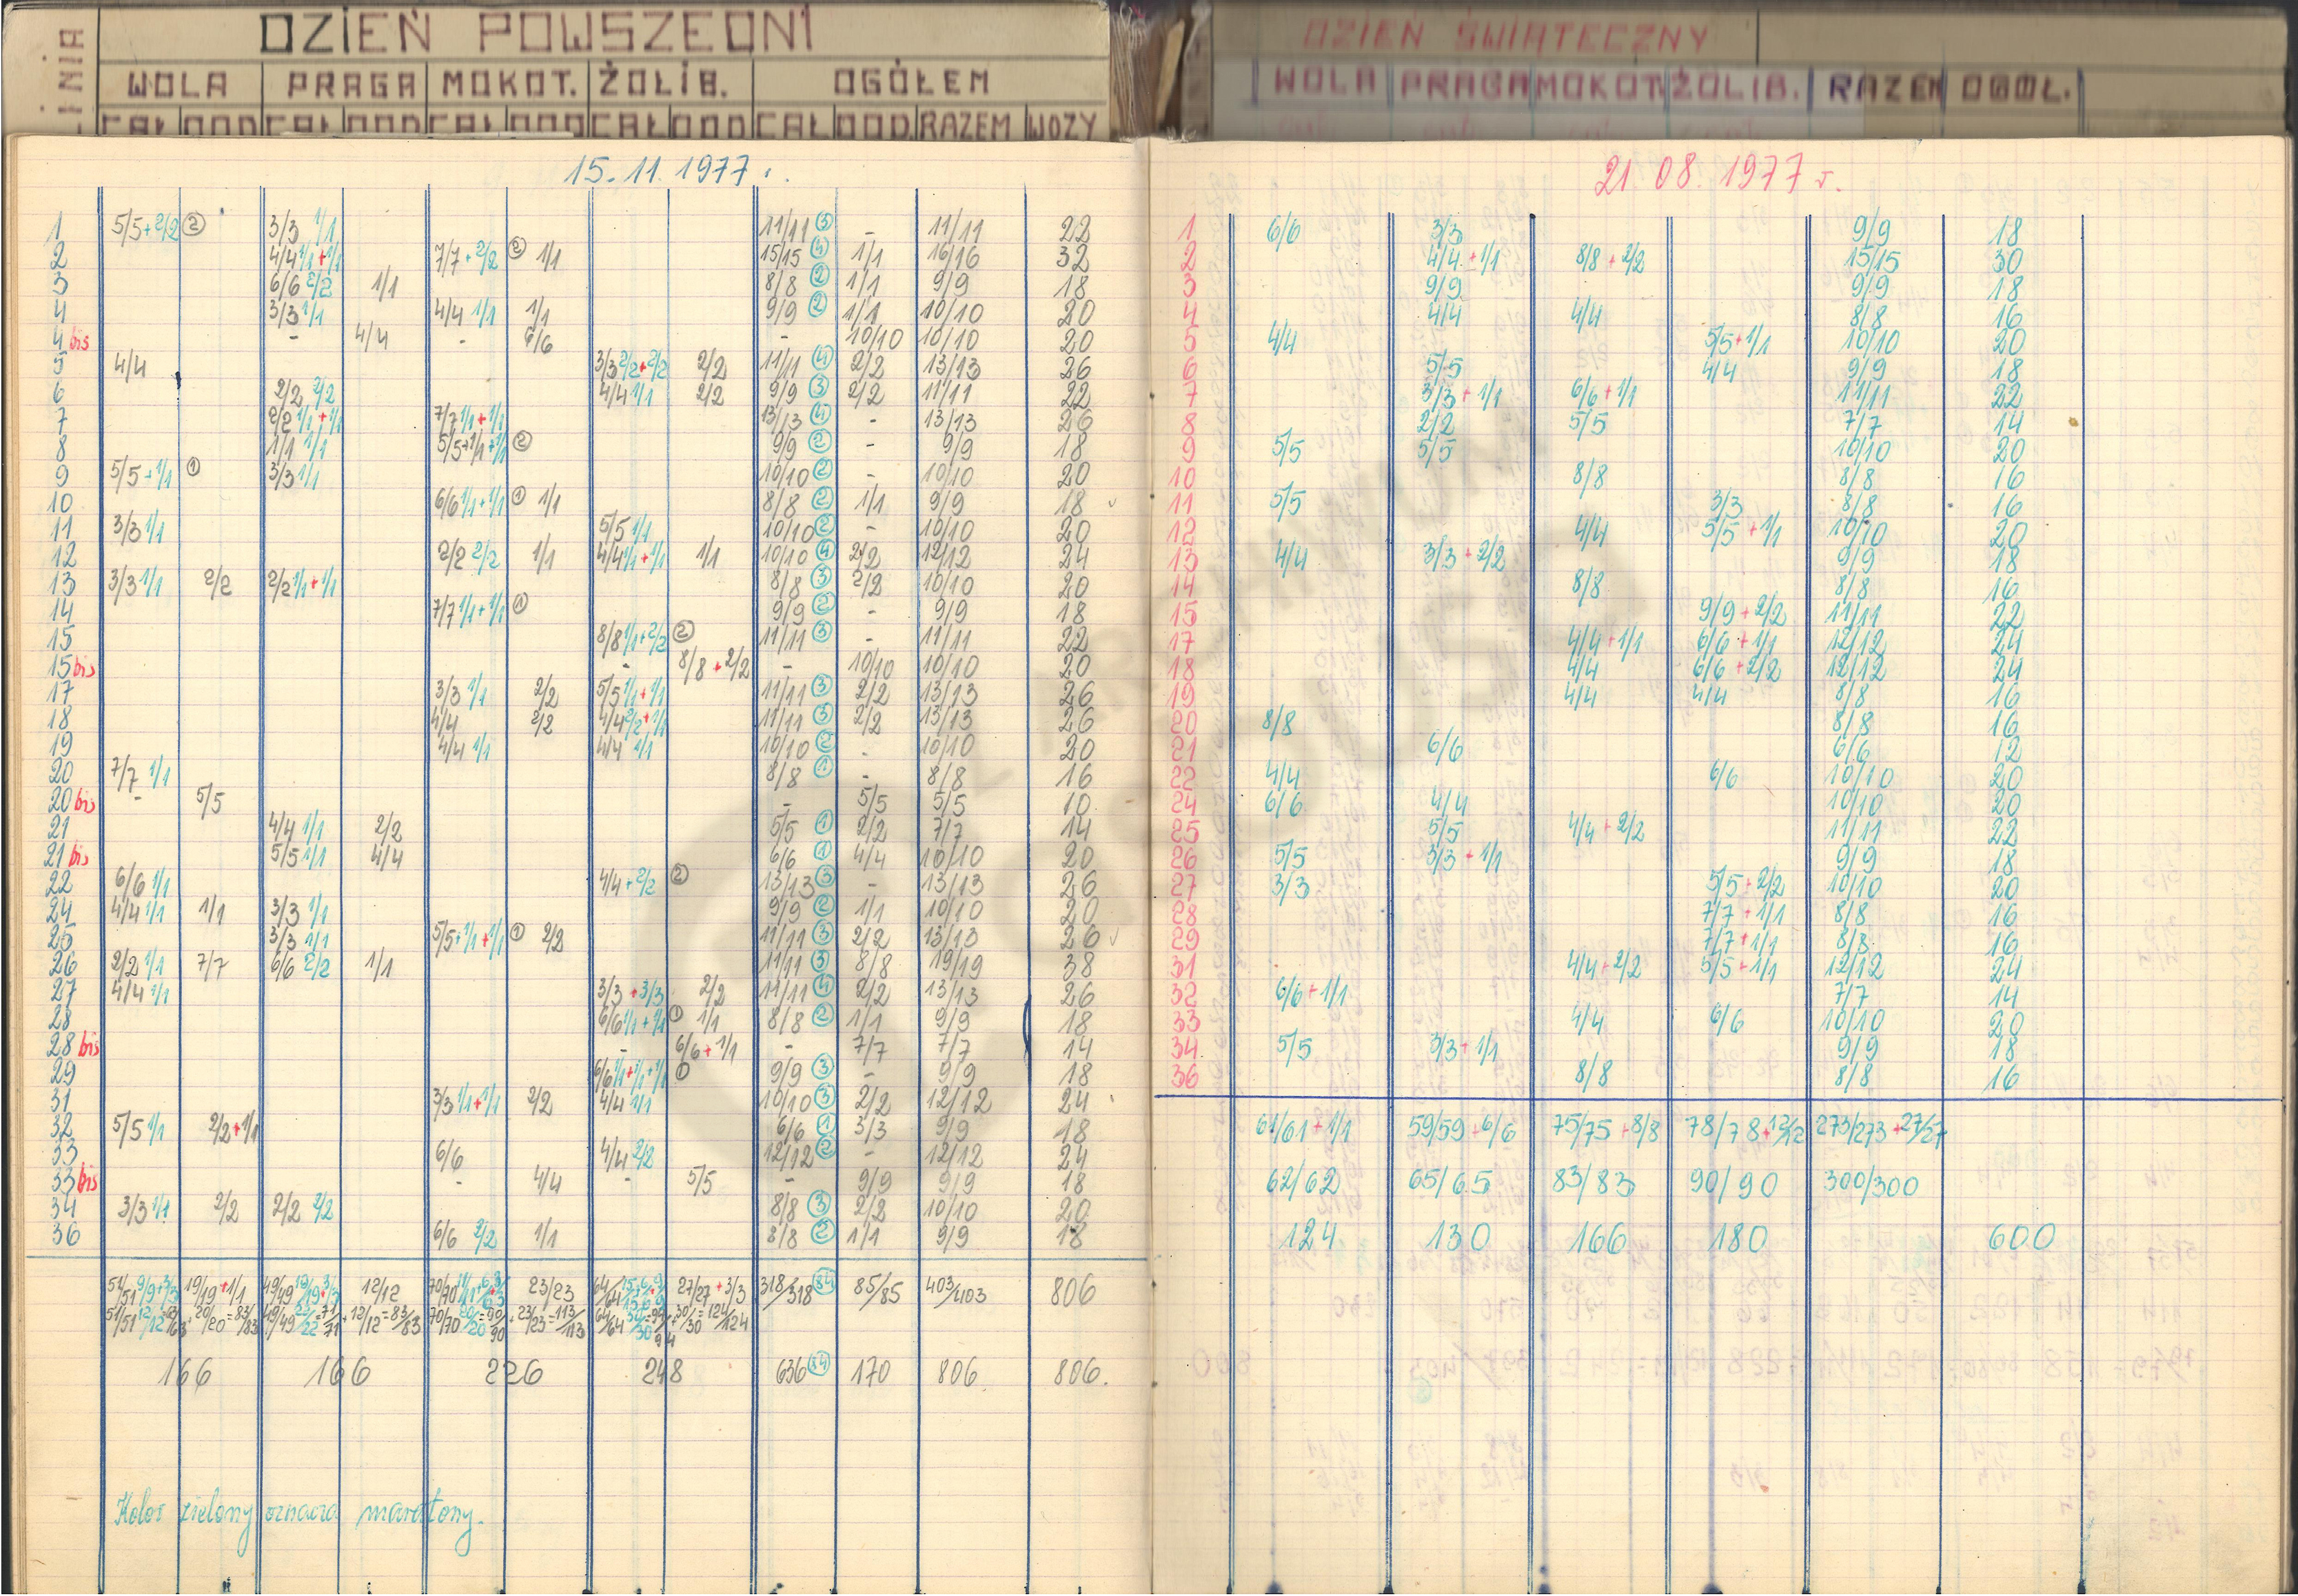 LINIA DZIEŃ POWSZEDNI
WOLA PRAGA MOKOT. ŻOLIB. OGÓŁEM
CAŁ DOD CAŁ DOD CAŁ DOD CAŁ DOD CAŁ DOD RAZEM WOZY
15.11.1977 r.
1 5/5+2/2 ② 3/3 1/1 11/11 ③ - 11/11 22
2 4/4 1/1+1/1 7/7+2/2 ② 1/1 15/15 ④ 1/1 16/16 32
3 6/6 2/2 1/1 8/8 ② 1/1 9/9 18
4 3/3 1/1 4/4 1/1 1/1 9/9 ② 1/1 10/10 20
4 bis - 4/4 - 6/6 - 10/10 10/10 20
5 4/4 3/3 2/2+2/2 2/2 11/11 ④ 2/2 13/13 26
6 2/2 2/2 4/4 1/1 2/2 9/9 ③ 2/2 11/11 22
7 2/2 1/1+1/1 7/7 1/1+1/1 13/13 ④ - 13/13 26
8 1/1 1/1 5/5+1/1+1/1 ② 9/9 ② - 9/9 18
9 5/5+1/1 ① 3/3 1/1 10/10 ② - 10/10 20
10 6/6 1/1+1/1 ① 1/1 8/8 ② 1/1 9/9 18
11 3/3 1/1 5/5 1/1 10/10 ② - 10/10 20
12 2/2 2/2 1/1 4/4 1/1+1/1 1/1 10/10 ④ 2/2 12/12 24
13 3/3 1/1 2/2 2/2 1/1+1/1 8/8 ③ 2/2 10/10 20
14 7/7 1/1+1/1 ① 9/9 ② - 9/9 18
15 8/8 1/1+2/2 ② 11/11 ③ - 11/11 22
15 bis - 8/8+2/2 - 10/10 10/10 20
17 3/3 1/1 2/2 5/5 1/1+1/1 11/11 ③ 2/2 13/13 26
18 4/4 2/2 4/4 2/2+1/1 11/11 ③ 2/2 13/13 26
19 4/4 1/1 4/4 1/1 10/10 ② - 10/10 20
20 7/7 1/1 8/8 ① - 8/8 16
20 bis - 5/5 - 5/5 5/5 10
21 4/4 1/1 2/2 5/5 ① 2/2 7/7 14
21 bis 5/5 1/1 4/4 6/6 ① 4/4 10/10 20
22 6/6 1/1 4/4+2/2 ② 13/13 ③ - 13/13 26
24 4/4 1/1 1/1 3/3 1/1 9/9 ② 1/1 10/10 20
25 3/3 1/1 5/5+1/1+1/1 ① 2/2 11/11 ③ 2/2 13/13 26
26 2/2 1/1 7/7 6/6 2/2 1/1 11/11 ③ 8/8 19/19 38
27 4/4 1/1 3/3+3/3 2/2 11/11 ④ 2/2 13/13 26
28 6/6 1/1+1/1 ① 1/1 8/8 ② 1/1 9/9 18
28 bis - 6/6+1/1 - 7/7 7/7 14
29 6/6 1/1+1/1+1/1 ① 9/9 ③ - 9/9 18
31 3/3 1/1+1/1 2/2 4/4 1/1 10/10 ③ 2/2 12/12 24
32 5/5 1/1 2/2+1/1 6/6 ① 3/3 9/9 18
33 6/6 4/4 2/2 12/12 ② - 12/12 24
33 bis - 4/4 - 5/5 - 9/9 9/9 18
34 3/3 1/1 2/2 2/2 2/2 8/8 ③ 2/2 10/10 20
36 6/6 2/2 1/1 8/8 ② 1/1 9/9 18
51/51 9/9+3/3 19/19+1/1 49/49 19/19+3/3 12/12 23/23 27/27+3/3 318/318 84 85/85 403/403 806
51/51 12/12=63/63+20/20=83/83 49/49 22/22=71/71+12/12=83/83 70/70 20/20=90/90+23/23=113/113 64/64 30/30=94/94+30/30=124/124
166 166 226 248 636 84 170 806 806.
Kolor zielony oznacza maratony.
DZIEŃ ŚWIĄTECZNY
WOLA PRAGA MOKOT. ŻOLIB. RAZEM OGÓŁ.
21.08.1977 r.
1 6/6 3/3 9/9 18
2 4/4+1/1 8/8+2/2 15/15 30
3 9/9 9/9 18
4 4/4 4/4 8/8 16
5 4/4 5/5+1/1 10/10 20
6 5/5 4/4 9/9 18
7 3/3+1/1 6/6+1/1 11/11 22
8 2/2 5/5 7/7 14
9 5/5 5/5 10/10 20
10 8/8 8/8 16
11 5/5 3/3 8/8 16
12 4/4 5/5+1/1 10/10 20
13 4/4 3/3+2/2 9/9 18
14 8/8 8/8 16
15 9/9+2/2 11/11 22
17 4/4+1/1 6/6+1/1 12/12 24
18 4/4 6/6+2/2 12/12 24
19 4/4 4/4 8/8 16
20 8/8 8/8 16
21 6/6 6/6 12
22 4/4 6/6 10/10 20
24 6/6 4/4 10/10 20
25 5/5 4/4+2/2 11/11 22
26 5/5 3/3+1/1 9/9 18
27 3/3 5/5+2/2 10/10 20
28 7/7+1/1 8/8 16
29 7/7+1/1 8/8 16
31 4/4+2/2 5/5+1/1 12/12 24
32 6/6+1/1 7/7 14
33 4/4 6/6 10/10 20
34 5/5 3/3+1/1 9/9 18
36 8/8 8/8 16
61/61+1/1 59/59+6/6 75/75+8/8 78/78+12/12 273/273+27/27
62/62 65/65 83/83 90/90 300/300
124 130 166 180 600